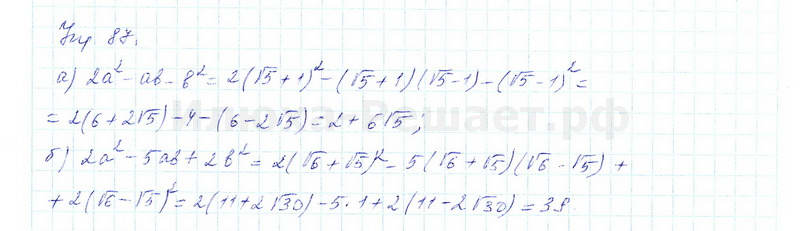 Упр. 87.
а) 2a² - ab - b² = 2(√5 + 1)² - (√5 + 1)(√5 - 1) - (√5 - 1)² =
= 2(6 + 2√5) - 4 - (6 - 2√5) = 2 + 6√5;
б) 2a² - 5ab + 2b² = 2(√6 + √5)² - 5(√6 + √5)(√6 - √5) +
+ 2(√6 - √5)² = 2(11 + 2√30) - 5·1 + 2(11 - 2√30) = 39